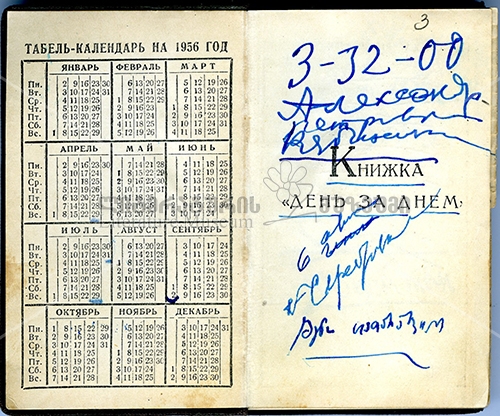 ТАБЕЛЬ-КАЛЕНДАРЬ НА 1956 ГОД
ЯНВАРЬ ФЕВРАЛЬ МАРТ
Пн. 2 9 16 23 30 6 13 20 27 5 12 19 26
Вт. 3 10 17 24 31 7 14 21 28 6 13 20 27
Ср. 4 11 18 25 1 8 15 22 29 7 14 21 28
Чт. 5 12 19 26 2 9 16 23 1 8 15 22 29
Пт. 6 13 20 27 3 10 17 24 2 9 16 23 30
Сб. 7 14 21 28 4 11 18 25 3 10 17 24 31
Вс. 1 8 15 22 29 5 12 19 26 4 11 18 25
АПРЕЛЬ МАЙ ИЮНЬ
Пн. 2 9 16 23 30 7 14 21 28 4 11 18 25
Вт. 3 10 17 24 1 8 15 22 29 5 12 19 26
Ср. 4 11 18 25 2 9 16 23 30 6 13 20 27
Чт. 5 12 19 26 3 10 17 24 31 7 14 21 28
Пт. 6 13 20 27 4 11 18 25 1 8 15 22 29
Сб. 7 14 21 28 5 12 19 26 2 9 16 23 30
Вс. 1 8 15 22 29 6 13 20 27 3 10 17 24
ИЮЛЬ АВГУСТ СЕНТЯБРЬ
Пн. 2 9 16 23 30 6 13 20 27 3 10 17 24
Вт. 3 10 17 24 31 7 14 21 28 4 11 18 25
Ср. 4 11 18 25 1 8 15 22 29 5 12 19 26
Чт. 5 12 19 26 2 9 16 23 30 6 13 20 27
Пт. 6 13 20 27 3 10 17 24 31 7 14 21 28
Сб. 7 14 21 28 4 11 18 25 1 8 15 22 29
Вс. 1 8 15 22 29 5 12 19 26 2 9 16 23 30
ОКТЯБРЬ НОЯБРЬ ДЕКАБРЬ
Пн. 1 8 15 22 29 5 12 19 26 3 10 17 24 31
Вт. 2 9 16 23 30 6 13 20 27 4 11 18 25
Ср. 3 10 17 24 31 7 14 21 28 5 12 19 26
Чт. 4 11 18 25 1 8 15 22 29 6 13 20 27
Пт. 5 12 19 26 2 9 16 23 30 7 14 21 28
Сб. 6 13 20 27 3 10 17 24 1 8 15 22 29
Вс. 7 14 21 28 4 11 18 25 2 9 16 23 30
3
3-32-00
Александр
КНИЖКА
«ДЕНЬ ЗА ДНЕМ,
6